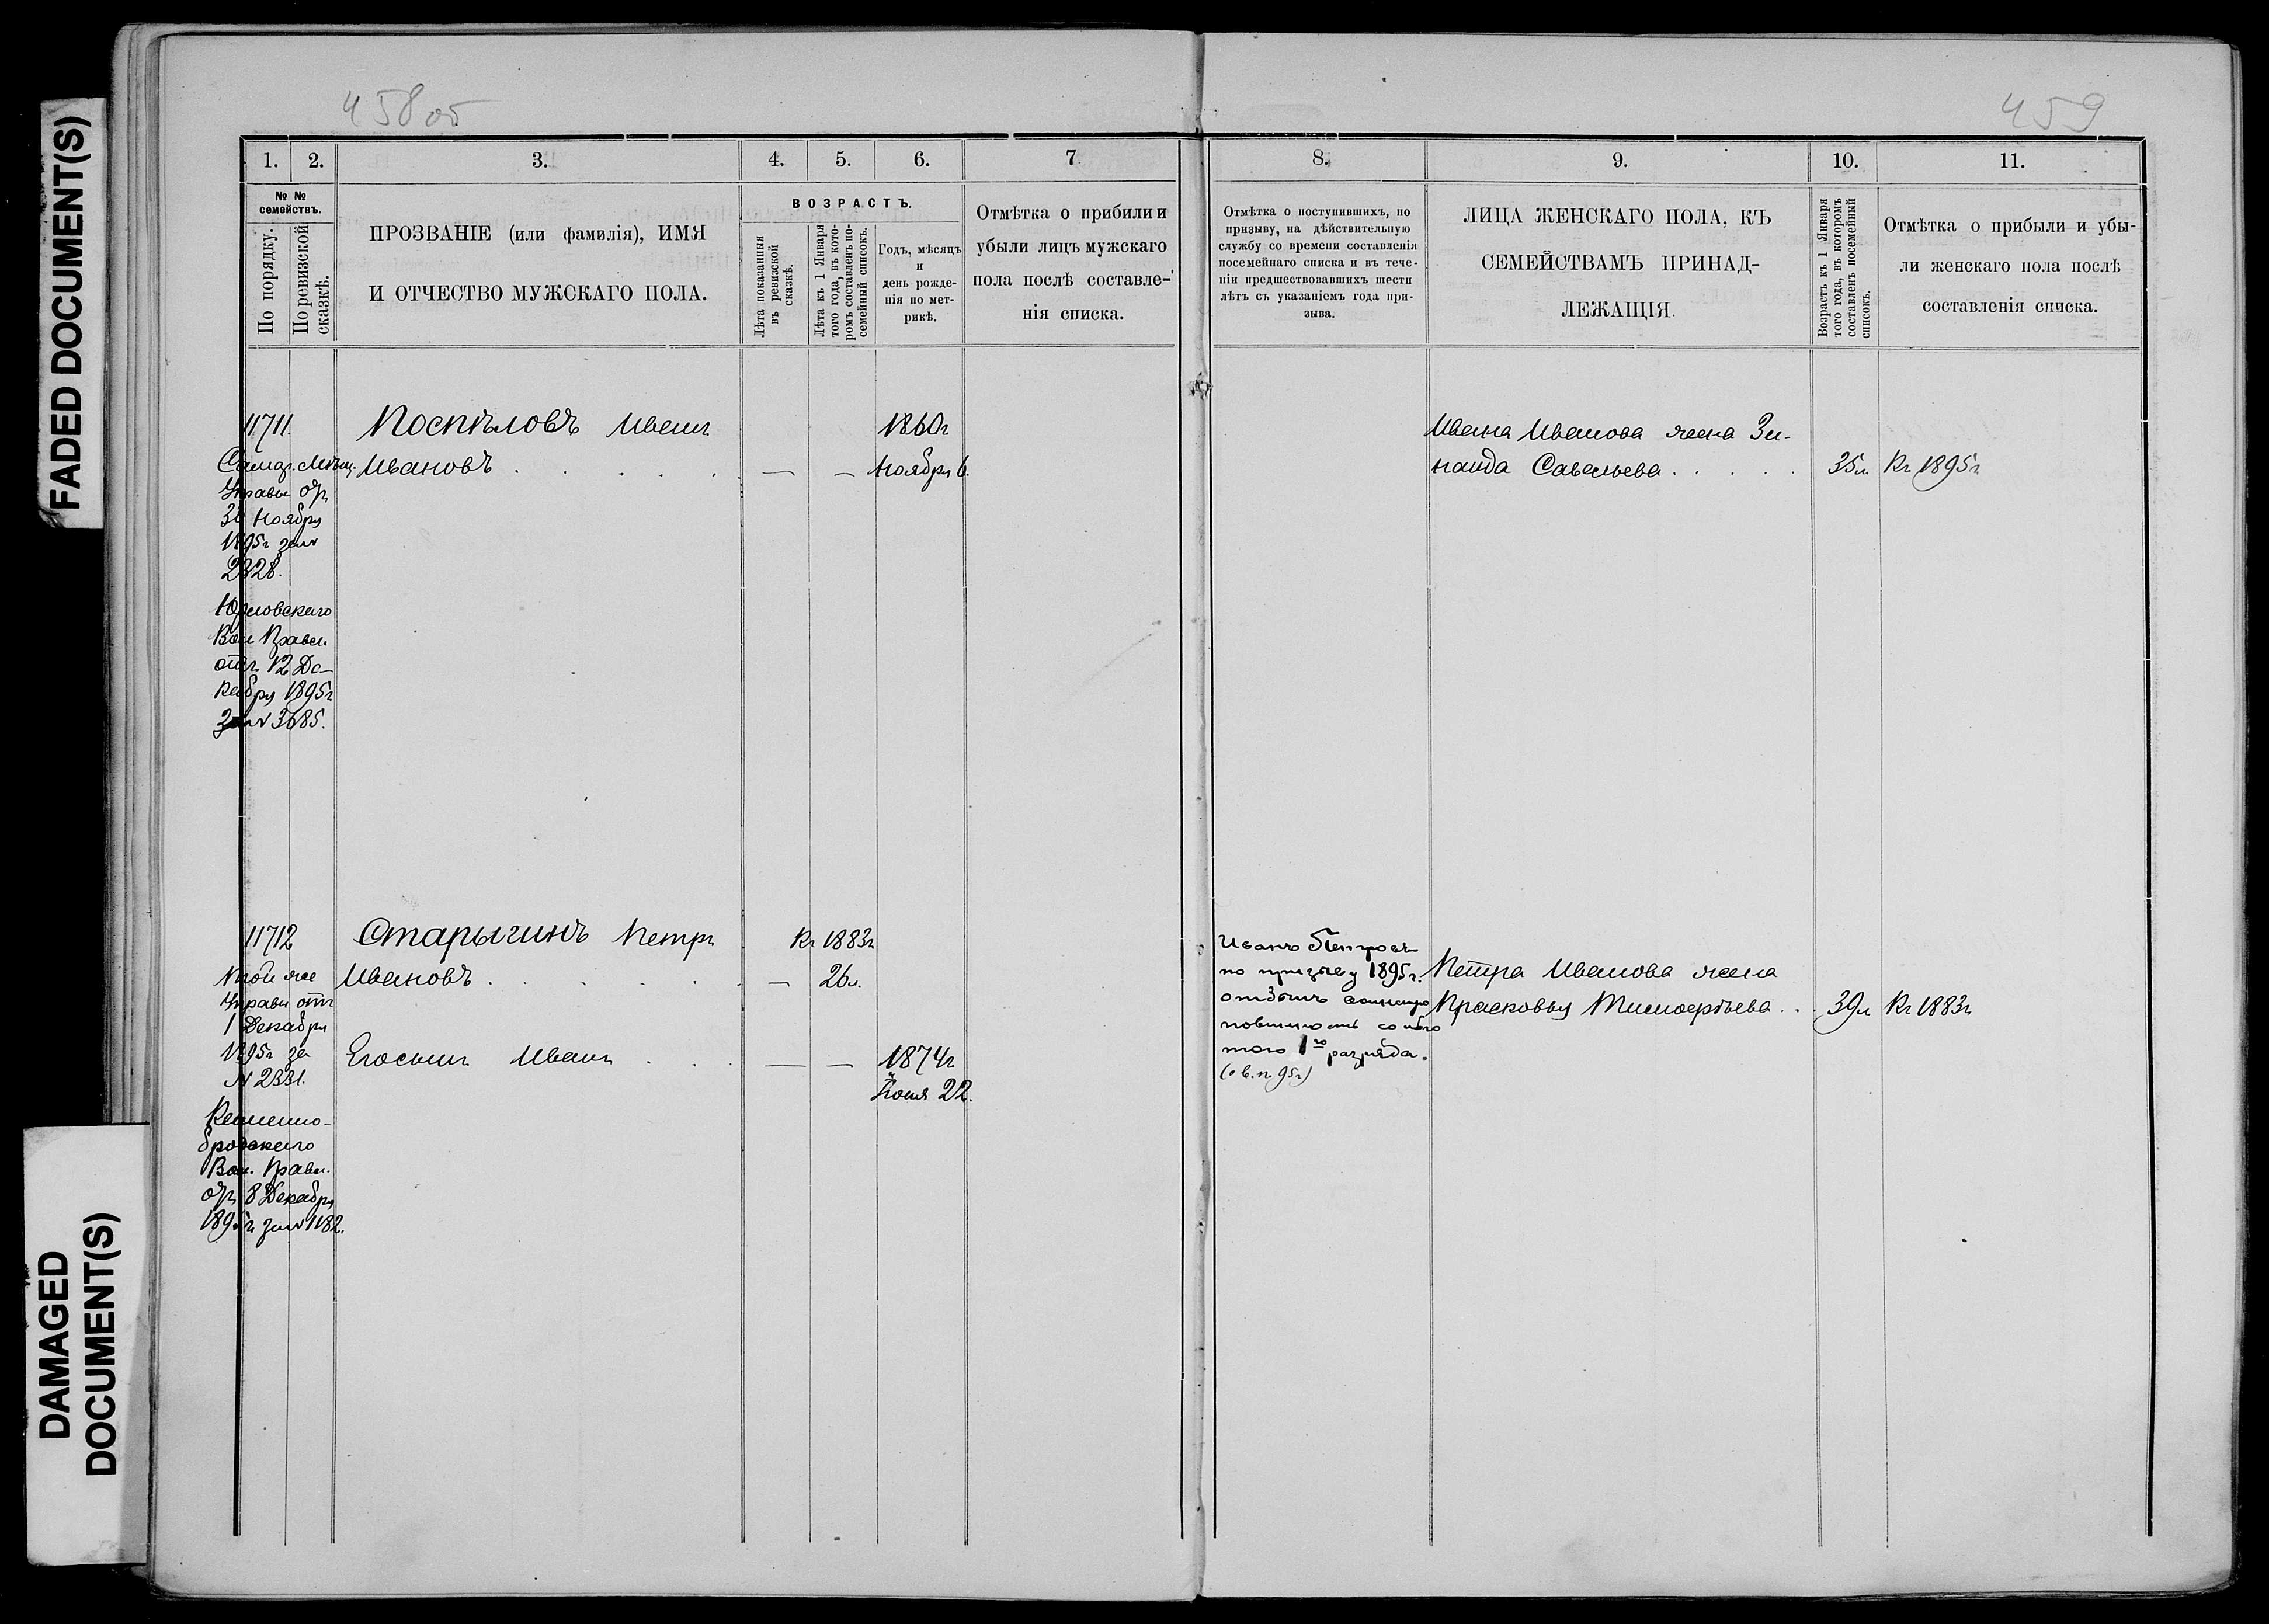 FADED DOCUMENT(S)
DAMAGED
DOCUMENT(S)
458об
1.
2.
3.
4.
5.
6.
7
№ №
семействъ.
По порядку.
По ревизской
сказкѣ.
ПРОЗВАНІЕ (или фамилія), ИМЯ
И ОТЧЕСТВО МУЖСКАГО ПОЛА.
ВОЗРАСТЪ.
Лѣта показанныя
въ ревизской
сказкѣ.
Лѣта къ 1 Января
того года, въ кото-
ромъ составленъ по-
семейный списокъ.
Годъ, мѣсяцъ
и
день рожде-
нія по мет-
рикѣ.
Отмѣтка о прибыли и
убыли лицъ мужскаго
пола послѣ составле-
нія списка.
11711.
Самар. Мѣщ.
Управы отъ
30 Ноября
1895г за №
2328.
Юрловскаго
Вол Правл.
отъ 12 Де-
кабря 1895г
за № 3685.
Поспѣловъ Иванъ
Ивановъ . . . . .
— —
1860г
Ноября 6.
11712
той же
Управы отъ
1 Декабря
1895г за
№ 2331.
Каменно-
бродскаго
Вол. Правл.
отъ 8 Декабря
1895г за № 1182.
Старыгинъ Петръ
Ивановъ . . . . .
Къ 1883г
— 26л.
Его сынъ Иванъ . . .
— —
1874г
Іюня 22.
459
8.
9.
10.
11.
Отмѣтка о поступившихъ, по
призыву, на дѣйствительную
службу со времени составленія
посемейнаго списка и въ тече-
ніи предшествовавшихъ шести
лѣтъ съ указаніемъ года при-
зыва.
ЛИЦА ЖЕНСКАГО ПОЛА, КЪ
СЕМЕЙСТВАМЪ ПРИНАД-
ЛЕЖАЩІЯ.
Возрастъ къ 1 Января
того года, въ которомъ
составленъ посемейный
списокъ.
Отмѣтка о прибыли и убы-
ли женскаго пола послѣ
составленія списка.
Ивана Иванова жена Зи-
наида Савельева . . . . .
35л
Къ 1895г
Иванъ Петровъ
по призыву 1895г.
отбылъ воинскую
повинность
1го разряда.
Петра Иванова жена
Прасковья Тимофеева . . .
39л
Къ 1883г